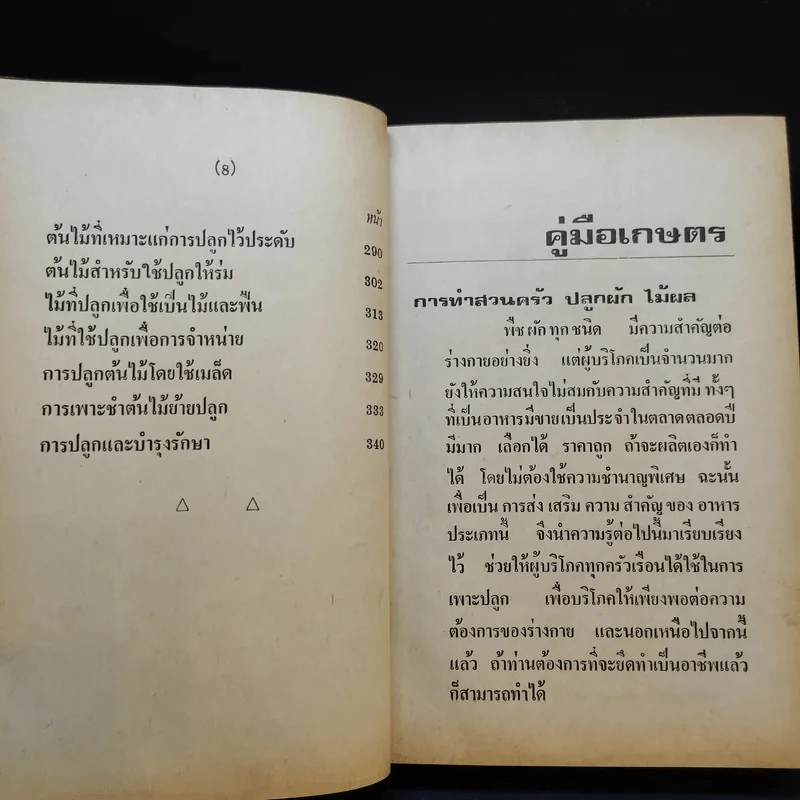 (8)
หน้า
ต้นไม้ที่เหมาะแก่การปลูกไว้ประดับ 290
ต้นไม้สำหรับใช้ปลูกให้ร่ม 302
ไม้ที่ปลูกเพื่อใช้เป็นไม้และฟืน 313
ไม้ที่ใช้ปลูกเพื่อการจำหน่าย 320
การปลูกต้นไม้โดยใช้เมล็ด 329
การเพาะชำต้นไม้ย้ายปลูก 333
การปลูกและบำรุงรักษา 340
คู่มือเกษตร
การทำสวนครัว ปลูกผัก ไม้ผล
พืชผักทุกชนิด มีความสำคัญต่อ
ร่างกายอย่างยิ่ง แต่ผู้บริโภคเป็นจำนวนมาก
ยังให้ความสนใจไม่สมกับความสำคัญที่มี ทั้งๆ
ที่เป็นอาหารมีขายเป็นประจำในตลาดตลอดปี
มีมาก เลือกได้ ราคาถูก ถ้าจะผลิตเองก็ทำ
ได้ โดยไม่ต้องใช้ความชำนาญพิเศษ ฉะนั้น
เพื่อเป็น การส่ง เสริม ความ สำคัญ ของ อาหาร
ประเภทนี้ จึงนำความรู้ต่อไปนี้มาเรียบเรียง
ไว้ ช่วยให้ผู้บริโภคทุกครัวเรือนได้ใช้ในการ
เพาะปลูก เพื่อบริโภคให้เพียงพอต่อความ
ต้องการของร่างกาย และนอกเหนือไปจากนี้
แล้ว ถ้าท่านต้องการที่จะยึดทำเป็นอาชีพแล้ว
ก็สามารถทำได้